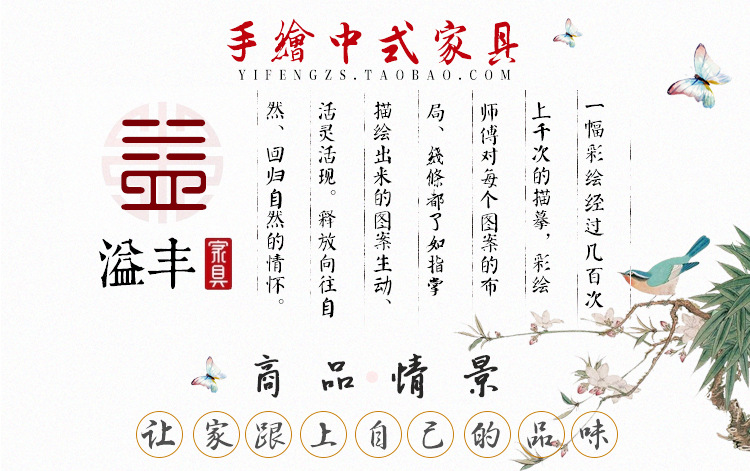 手繪中式家具
YIFENGZS.TAOBAO.COM
一幅彩绘经过几百次
上千次的描摹，彩绘
师傅对每个图案的布
局、线條都了如指掌
描绘出来的图案生动、
活灵活现。释放向往自
然、回归自然的情怀。
溢丰
家具
商品·情景
让家跟上自己的品味